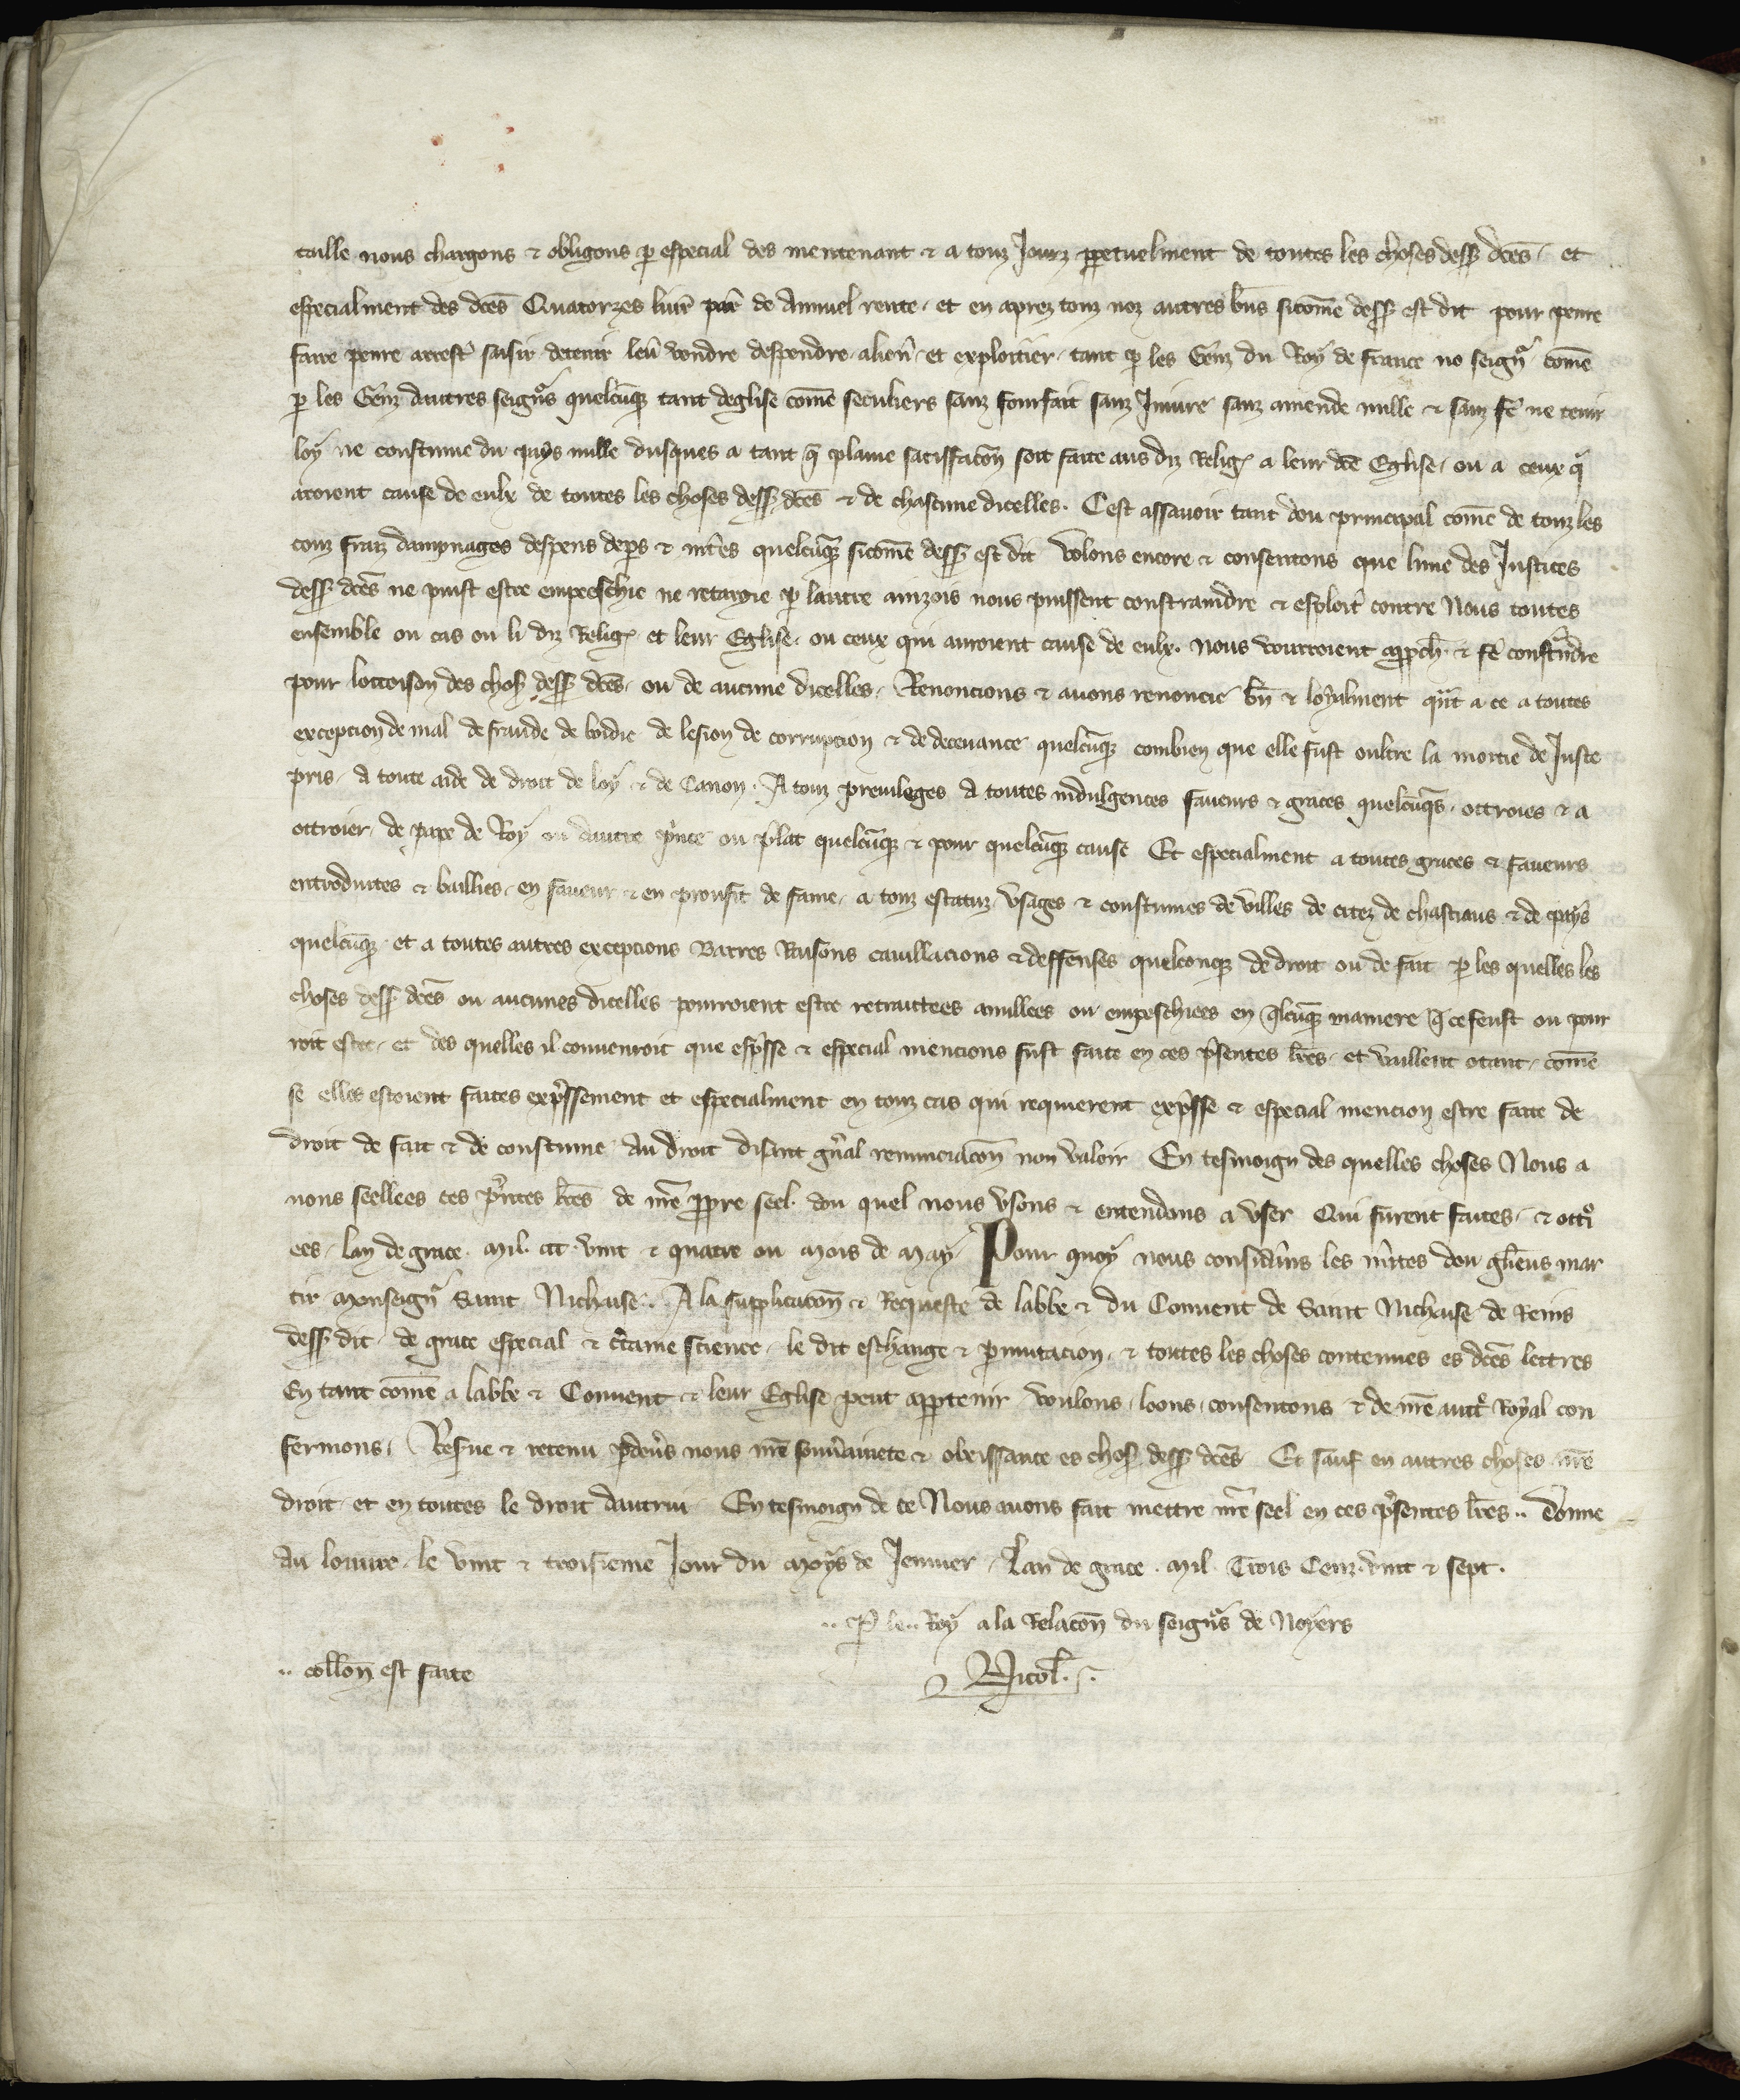 taille nous chargons & obligons p especial des mentenant & a touz Jourz ppetuelment de toutes les choses dess dces. et
especialment des dces Quatorzes liur par de Annuel rente. et en aprez touz noz autres bns sicome dess est dit pour penre
faire penre arrest saisir detenir leu vendre despendre alien et exploitier. tant p les Genz du Roy de france no seignr come
p les Genz dautres seignrs quelcuq tant deglise come seculiers sanz fourfait sanz Iniure sanz amende nulle & sanz fe ne tenir
loy ne coustume du pays nulle dusques a tant q plaine satiffacon soit faite aus diz Relig a leur dce Eglise. ou a ceux q
aroient cause de eulx de toutes les choses dess dces & de chascune dicelles. Cest assauoir tant dou principal come de touz les
couz fraiz dampnages despens deps & intes quelcuq sicome dess est dit Volons encore & consentons que lune des Justices
dess dces ne puist estre empeeschie ne retargie p lautre ainzois nous puissent constraindre & exploit contre Nous toutes
ensemble ou cas ou li diz Relig et leur Eglise. ou ceux qui auroient cause de eulx. nous vourroient approch & fe constndre
pour locroison des chos dess dces. ou de aucune dicelles. Renoncions & auons renoncie bn & loyalment qnt a ce a toutes
exception de mal de fraude de boidie de lesion de corrupcion & de deceuance quelcuq combien que elle fust oultre la moitie de Juste
pris. a toute aide de droit de loy & de Canon. A touz preuileges a toutes indulgences faueurs & graces quelcuqs. ottroies & a
ottroier. de pape de Roy ou dautre pince ou plat quelcuq & pour quelcuq cause Et especialment a toutes graces & faueurs
entroduites & baillies. en faueur & en proufit de fame. a touz estatuz vsages & coustumes de villes de citez de chastiaus & de pays
quelcuq. et a toutes autres excepcions Barres Raisons cauillacions & deffenses quelconq de droit ou de fait p les quelles les
choses dess dces ou aucunes dicelles pourroient estre retraittees anullees ou empeschiees en qlcuq maniere q ce feust ou pour
roit estre. et des quelles il conuenroit que expsse & especial mencions fust faite en ces psentes lres. et vaillent otant. come
se elles estoient faites expssement et especialment en touz cas qui requierent expsse & especial mencion estre faite de
droit de fait & de coustume. Au droit disant gnal renunciacon non valoir En tesmoign des quelles choses Nous a
uons seellees ces pntes lres de nre ppre seel. dou quel nous vsons & entendons a vser Qui furent faites. & ottri
ees. lan de grace. Mil. ccc. vint & quatre ou Mois de May. Pour quoy nous considans les mites dou glieus mar
tir Monseignr Saint Nichaise.. A la supplicacon & Requeste de labbe & du Conuent de Saint Nichaise de Reins
dess dit. de grace especial & ctaine science. le dit eschange & pmutacion. & toutes les choses contenues es dces lettres
En tant come a labbe & Conuent & leur Eglise peut appartenir voulons. loons. consentons & de nre auct Royal con
fermons. Resue & retenu pdeus nous nre souuainete & obeissance es chos dess dces Et sauf en autres choses nre
droit. et en toutes le droit dautrui. En tesmoign de ce Nous auons fait mettre nre seel en ces psentes lres.. donne
au louure. le vint & troisieme Jour du Moys de Jenuier. Lan de grace. Mil. Trois Cenz. vint & sept.
.. P le.. Roy a la Relacon du seigns de Noyers
.. collon est faite
Nicol.